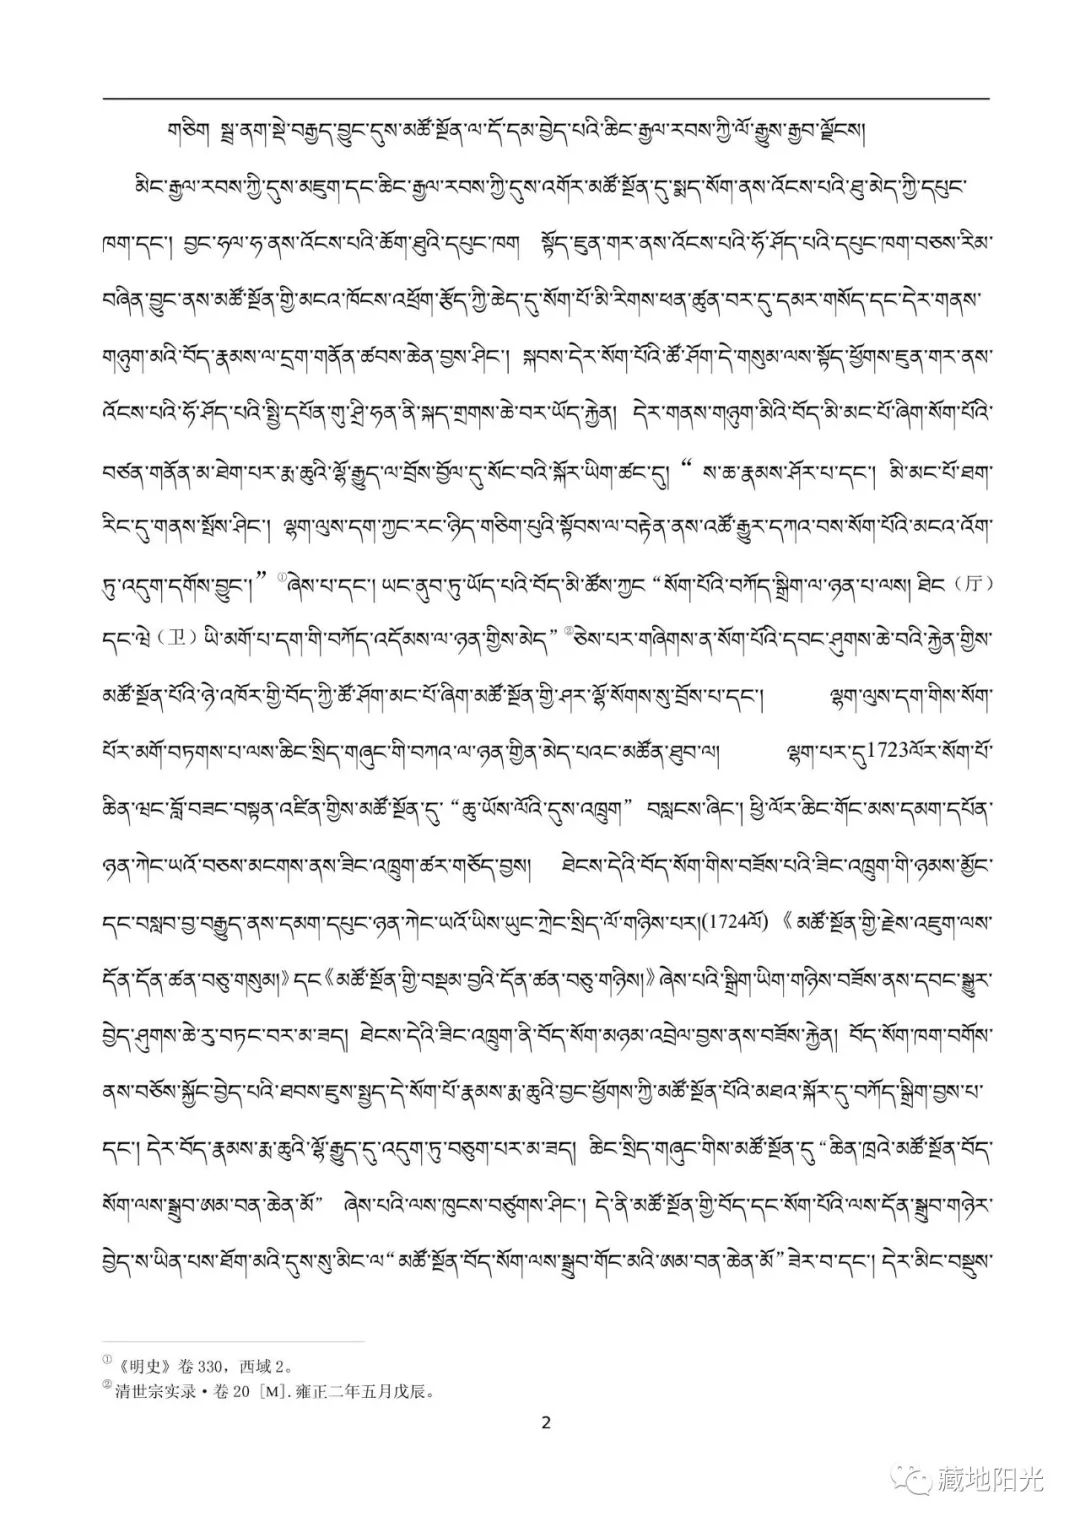 གཅིག སྦྲ་ནག་སྡེ་བརྒྱད་བྱུང་དུས་མཚོ་སྔོན་ལ་དོ་དམ་བྱེད་པའི་ཆིང་རྒྱལ་རབས་ཀྱི་ལོ་རྒྱུས་རྒྱབ་ལྗོངས།
མིང་རྒྱལ་རབས་ཀྱི་དུས་མཇུག་དང་ཆིང་རྒྱལ་རབས་ཀྱི་དུས་འགོར་མཚོ་སྔོན་དུ་སྨད་སོག་ནས་འོངས་པའི་ཐུ་མེད་ཀྱི་དཔུང་
ཁག་དང་། བྱང་ཧལ་ཧ་ནས་འོངས་པའི་ཆོག་ཐུའི་དཔུང་ཁག སྟོད་ཇུན་གར་ནས་འོངས་པའི་ཧོ་ཤོད་པའི་དཔུང་ཁག་བཅས་རིམ་
བཞིན་བྱུང་ནས་མཚོ་སྔོན་གྱི་མངའ་ཁོངས་འཕྲོག་རྩོད་ཀྱི་ཆེད་དུ་སོག་པོ་མི་རིགས་ཕན་ཚུན་བར་དུ་དམར་གསོད་དང་དེར་གནས་
གཉུག་མའི་བོད་རྣམས་ལ་དྲག་གནོན་ཚབས་ཆེན་བྱས་ཤིང་། སྐབས་དེར་སོག་པོའི་ཚོ་ཤོག་དེ་གསུམ་ལས་སྟོད་ཕྱོགས་ཇུན་གར་ནས་
འོངས་པའི་ཧོ་ཤོད་པའི་སྤྱི་དཔོན་གུ་ཤྲི་ཧན་ནི་སྐད་གྲགས་ཆེ་བར་ཡོད་རྐྱེན། དེར་གནས་གཉུག་མིའི་བོད་མི་མང་པོ་ཞིག་སོག་པོའི་
བཙན་གནོན་མ་ཐེག་པར་རྨ་ཆུའི་ལྷོ་རྒྱུད་ལ་བྲོས་བྱོལ་དུ་སོང་བའི་སྐོར་ཡིག་ཚང་དུ། “ ས་ཆ་རྣམས་ཤོར་པ་དང་། མི་མང་པོ་ཐག་
རིང་དུ་གནས་སྤོས་ཤིང་། ལྷག་ལུས་དག་ཀྱང་རང་ཉིད་གཅིག་པུའི་སྟོབས་ལ་བརྟེན་ནས་འཚོ་རྒྱུར་དཀའ་བས་སོག་པོའི་མངའ་འོག་
ཏུ་འདུག་དགོས་བྱུང་།” ①ཞེས་པ་དང་། ཡང་ནུབ་ཏུ་ཡོད་པའི་བོད་མི་ཚོས་ཀྱང “སོག་པོའི་བཀོད་སྒྲིག་ལ་ཉན་པ་ལས། ཐིང（厅）
དང་ཝེ（卫）ཡི་མགོ་པ་དག་གི་བཀོད་འདོམས་ལ་ཉན་གྱིས་མེད”②ཅེས་པར་གཞིགས་ན་སོག་པོའི་དབང་ཤུགས་ཆེ་བའི་རྐྱེན་གྱིས་
མཚོ་སྔོན་པོའི་ཉེ་འཁོར་གྱི་བོད་ཀྱི་ཚོ་ཤོག་མང་པོ་ཞིག་མཚོ་སྔོན་གྱི་ཤར་ལྷོ་སོགས་སུ་བྲོས་པ་དང་། ལྷག་ལུས་དག་གིས་སོག་
པོར་མགོ་བཏགས་པ་ལས་ཆིང་སྲིད་གཞུང་གི་བཀའ་ལ་ཉན་གྱིན་མེད་པའང་མཚོན་ཐུབ་ལ། ལྷག་པར་དུ1723ལོར་སོག་པོ་
ཆིན་ཝང་བློ་བཟང་བསྟན་འཛིན་གྱིས་མཚོ་སྔོན་དུ་ “ཆུ་ཡོས་ལོའི་དུས་འཁྲུག” བསླངས་ཞིང་། ཕྱི་ལོར་ཆིང་གོང་མས་དམག་དཔོན་
ཉན་ཀེང་ཡའོ་བཅས་མངགས་ནས་ཟིང་འཁྲུག་ཚར་གཅོད་བྱས། ཐེངས་དེའི་བོད་སོག་གིས་བཟོས་པའི་ཟིང་འཁྲུག་གི་ཉམས་མྱོང་
དང་བསླབ་བྱ་བརྒྱུད་ནས་དམག་དཔུང་ཉན་ཀེང་ཡའོ་ཡིས་ཡུང་ཀྲེང་སྲིད་ལོ་གཉིས་པར།(1724ལོ) 《 མཚོ་སྔོན་གྱི་རྗེས་འཇུག་ལས་
དོན་དོན་ཚན་བཅུ་གསུམ།》དང《མཚོ་སྔོན་གྱི་བསྡམ་བྱའི་དོན་ཚན་བཅུ་གཉིས།》ཞེས་པའི་སྒྲིག་ཡིག་གཉིས་བཟོས་ནས་དབང་སྒྱུར་
བྱེད་ཤུགས་ཆེ་རུ་བཏང་བར་མ་ཟད། ཐེངས་དེའི་ཟིང་འཁྲུག་ནི་བོད་སོག་མཉམ་འབྲེལ་བྱས་ནས་བཟོས་རྐྱེན། བོད་སོག་ཁག་བགོས་
ནས་བཅོས་སྐྱོང་བྱེད་པའི་ཐབས་ཇུས་སྤྱད་དེ་སོག་པོ་རྣམས་རྨ་ཆུའི་བྱང་ཕྱོགས་ཀྱི་མཚོ་སྔོན་པོའི་མཐའ་སྐོར་དུ་བཀོད་སྒྲིག་བྱས་པ་
དང་། དེར་བོད་རྣམས་རྨ་ཆུའི་ལྷོ་རྒྱུད་དུ་འདུག་ཏུ་བཅུག་པར་མ་ཟད། ཆིང་སྲིད་གཞུང་གིས་མཚོ་སྔོན་དུ “ཆིན་ཁྲའེ་མཚོ་སྔོན་བོད་
སོག་ལས་སྒྲུབ་ཨམ་བན་ཆེན་མོ” ཞེས་པའི་ལས་ཁུངས་བཙུགས་ཤིང་། དེ་ནི་མཚོ་སྔོན་གྱི་བོད་དང་སོག་པོའི་ལས་དོན་སྒྲུབ་གཉེར་
བྱེད་ས་ཡིན་པས་ཐོག་མའི་དུས་སུ་མིང་ལ“ མཚོ་སྔོན་བོད་སོག་ལས་སྒྲུབ་གོང་མའི་ཨམ་བན་ཆེན་མོ”ཟེར་བ་དང་། དེར་མིང་བསྡུས་
①《明史》卷 330，西域 2。
②清世宗实录·卷 20［M］.雍正二年五月戊辰。
2
藏地阳光